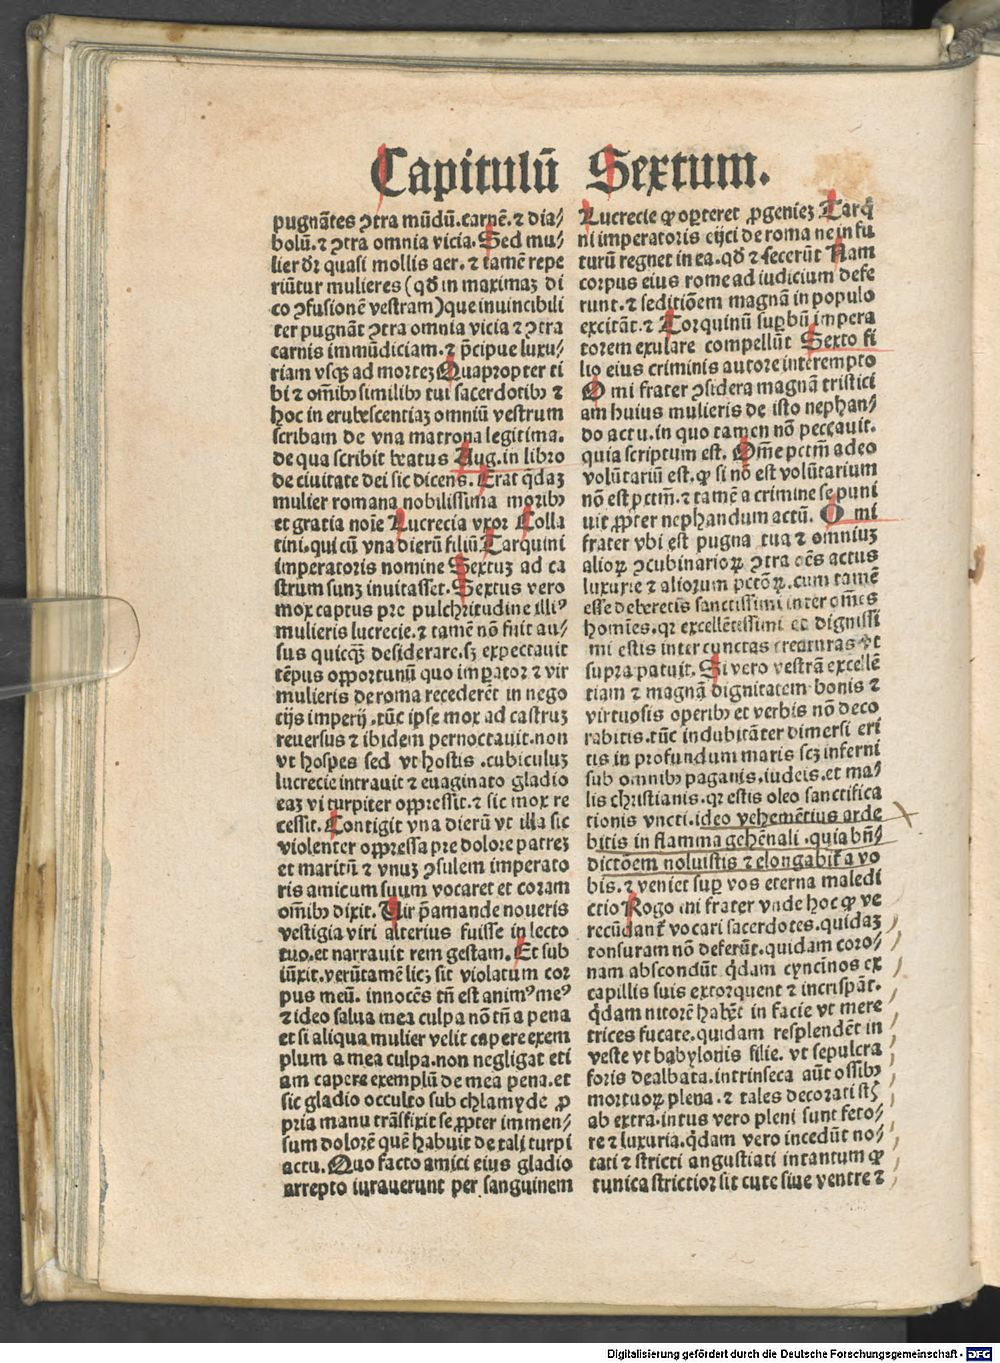 Capitulū Sextum.
pugnātes ꝯtra mūdū.carnē.⁊ dia⸗
bolū.⁊ ꝯtra omnia vicia.Sed mu⸗
lier dr̄ quasi mollis aer.⁊ tamē repe
riūtur mulieres (qd̄ in maximaꝫ di
co ꝯfusionē vestram)que inuincibili
ter pugnāt ꝯtra omnia vicia ⁊ ꝯtra
carnis immūdiciam.⁊ p̄cipue luxu⸗
riam vsqꝫ ad morteꝫ Quapropter ti
bi ⁊ om̄ibꝰ similibꝰ tui sacerdotibꝰ ⁊
hoc in erubescentiaꝫ omniū vestrum
scribam de vna matrona legitima.
de qua scribit beatus Aug.in libro
de ciuitate dei sic dicens.Erat q̄daꝫ
mulier romana nobilissima moribꝰ
et gratia noīe Lucrecia vxor Colla
tini.qui cū vna dierū filiū Tarquini
imperatoris nomine Sextuꝫ ad ca
strum suuꝫ inuitasset.Sextus vero
mox captus pre pulchritudine illiꝰ
mulieris lucrecie.⁊ tamē nō fuit au⸗
sus quicqꝫ desiderare.sꝫ expectauit
tēpus opportunū quo imꝑator ⁊ vir
mulieris de roma recederēt in nego
cijs imperij.tūc ipse mox ad castruꝫ
reuersus ⁊ ibidem pernoctauit.non
vt hospes sed vt hostis.cubiculuꝫ
lucrecie intrauit ⁊ euaginato gladio
eaꝫ vi turpiter oppressit.⁊ sic mox re
cessit.Contigit vna dierū vt illa sic
violenter oppressa pre dolore patreꝫ
et maritū ⁊ vnuꝫ ꝯsulem imperato
ris amicum suum vocaret et coram
om̄ibꝰ dixit.Uir p̄amande noueris
vestigia viri alterius fuisse in lecto
tuo.et narrauit rem gestam.Et sub
iūxit.verūtamē licꝫ sit violatum cor
pus meū.innocēs tn̄ est animꝰ meꝰ
⁊ ideo salua mea culpa nō tn̄ a pena
et si aliqua mulier velit capere exem
plum a mea culpa.non negligat eti
am capere exemplū de mea pena.et
sic gladio occulto sub chlamyde ꝓ
pria manu trāsfixit se ꝓpter immen⸗
sum dolorē quē habuit de tali turpi
actu.Quo facto amici eius gladio
arrepto iurauerunt per sanguinem
Lucrecie ꝙ oꝑteret ꝓgenieꝫ Tarq̄
ni imperatoris eijci de roma ne in fu
turū regnet in ea.qd̄ ⁊ fecerūt Nam
corpus eius rome ad iudicium defe
runt.⁊ seditiōem magnā in populo
excitāt.⁊ Torquinū suꝑbū impera
torem exulare compellūt Sexto fi
lio eius criminis autore interempto
O mi frater ꝯsidera magnā tristici
am huius mulieris de isto nephan⸗
do actu.in quo tamen nō peccauit.
quia scriptum est.Om̄e pctm̄ adeo
volūtariū est.ꝙ si nō est volūtarium
nō est pctm̄.⁊ tamē a crimine se puni
uit ꝓpter nephandum actū.O mi
frater vbi est pugna tua ⁊ omniuꝫ
alioꝝ ꝯcubinarioꝝ ꝯtra oēs actus
luxurie ⁊ aliorum pctōꝝ.cum tamē
esse deberetis sanctissimi inter om̄es
homīes.qꝛ excellētissimi et dignissi
mi estis inter cunctas creaturas vt
supra patuit.Si vero vestrā excellē
tiam ⁊ magnā dignitatem bonis ⁊
virtuosis operibꝰ et verbis nō deco
rabitis.tūc indubitāter dimersi eri
tis in profundum maris scꝫ inferni
sub omnibꝰ paganis.iudeis.et ma⸗
lis christianis.qꝛ estis oleo sanctifica
tionis vncti.ideo vehemētius arde
bitis in flamma gehēnali.quia bn̄⸗
dictōem noluistis ⁊ elongabit̄ a vo
bis.⁊ veniet suꝑ vos eterna maledi
ctio Rogo mi frater vnde hoc ꝙ ve
recūdant̄ vocari sacerdotes.quidaꝫ
tonsuram nō deferūt.quidam coro⸗
nam abscondūt q̄dam cyncinos ex
capillis suis extorquent ⁊ incrispāt.
q̄dam nitorē habēt in facie vt mere
trices fucate.quidam resplendēt in
veste vt babylonis filie.vt sepulcra
foris dealbata.intrinseca aūt ossibꝰ
mortuoꝝ plena.⁊ tales decorati st̄
ab extra.intus vero pleni sunt feto⸗
re ⁊ luxuria.q̄dam vero incedūt no⸗
tati ⁊ stricti angustiati intantum ꝙ
tunica strictior sit cute siue ventre ⁊
Digitalisierung gefördert durch die Deutsche Forschungsgemeinschaft - DFG